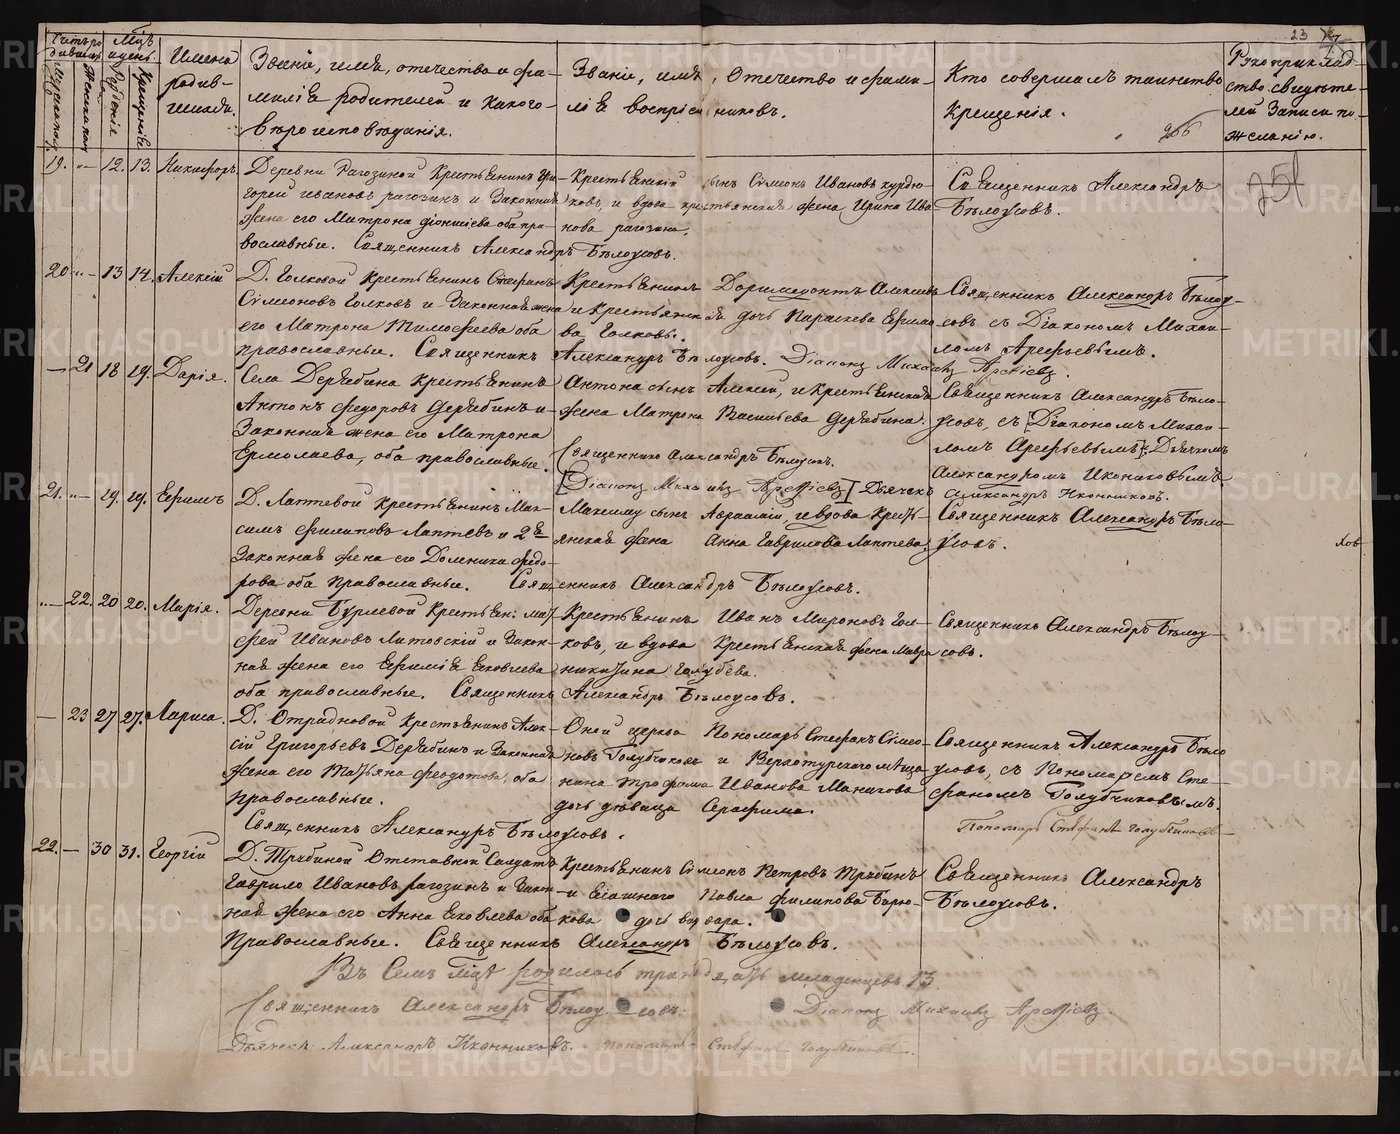 23
Счетъ родившихся
Мѣсяцъ и день
Имена родив-
шихся.
Званіе, имя, отечество и фа-
милія родителей и какого
вѣроисповѣданія.
Званіе, имя, отечество и фами-
лія воспріемниковъ.
Кто совершалъ таинство
Крещенія.
Рукоприклад-
ство свидѣте-
лей записи по
желанію.
мужескаго
женскаго
рожденія
крещенія
256
251
19. „ 12. 13. Никифоръ
Деревни Рагозиной крестьянинъ Гри-
горей Ивановъ Рагозинъ и законная
жена его Матрона Діонисіева оба пра-
вославные. Священникъ Александръ Бѣлоусовъ.
Крестьянскій сынъ Симеонъ Ивановъ Курдю-
ковъ, и вдова крестьянская жена Ирина Ива-
нова Рагозина.
Священникъ Александръ
Бѣлоусовъ.
20 „ 13 14. Алексій
Д. Голковой крестьянинъ Стефанъ
Симеоновъ Голковъ и законная жена
его Матрона Тимофеева оба
православные. Священникъ Александръ Бѣлоусовъ. Діаконъ Михаилъ Арефьевъ.
Крестьянинъ Доримедонтъ Алексѣевъ
и крестьянская дочь Параскева Ефимо-
ва Голковы.
Священникъ Александръ Бѣлоу-
совъ съ Діакономъ Михаи-
ломъ Арефьевымъ.
— 21 18 19. Дарія.
Села Дерябина крестьянинъ
Антонъ Федоровъ Дерябинъ и
законная жена его Матрона
Ермолаева, оба православные.
Антона сынъ Алексей, и крестьянская
жена Матрона Васильева Дерябина.
Священникъ Александръ Бѣлоусовъ.
[Діаконъ Михаилъ Арефьевъ] Дьячекъ
Александръ Иконниковъ.
Священникъ Александръ Бѣло-
усовъ, съ [Діакономъ Михаи-
ломъ Арефьевымъ] Дьячкомъ
Александромъ Иконниковымъ
21. „ 19. 19. Ефимъ
Д. Лаптевой крестьянинъ Мак-
симъ Филиповъ Лаптевъ и 2я
законная жена его Домника Федо-
рова оба православные. Священникъ Александръ Бѣлоусовъ.
Максима сынъ Авраамій, и вдова крестья-
янская жена Анна Гаврилова Лаптева
Священникъ Александръ Бѣло-
усовъ.
ховъ
„ 22. 20 20. Марія.
Деревни Бурлевой крестьян: Мат-
фей Ивановъ Литовскій и закон-
ная жена его Ефимія Яковлева
оба православные. Священникъ Александръ Бѣлоусовъ.
Крестьянинъ Иванъ Мироновъ Гол-
ковъ, и вдова крестьянская жена Мавра
Никитина Голубева.
Священникъ Александръ Бѣлоу-
совъ.
— 23 27 27. Лариса.
Д. Отрадновой крестьянинъ Алек-
сій Григорьевъ Дерябинъ и законная
жена его Татьяна Федотова, оба
православные.
Священникъ Александръ Бѣлоусовъ.
Оной церкви Пономарь Стефанъ Симео-
новъ Голубчиковъ и Верхотурскаго мѣща-
нина Трофима Иванова Манигова
дочь дѣвица Серафима.
Священникъ Александръ Бѣло-
усовъ, съ Пономаремъ Сте-
фаномъ Голубчиковымъ.
Пономарь Стефанъ Голубчиковъ
22. — 30 31. Георгій
Д. Трубиной отставной солдатъ
Гаврило Ивановъ Рагозинъ и закон-
ная жена его Анна Яковлева оба
православные. Священникъ Александръ Бѣлоусовъ.
Крестьянинъ Симеонъ Петровъ Трубинъ
и ясашнаго Павла Филипова Бирю-
кова дочь Варвара.
Священникъ Александръ
Бѣлоусовъ.
Въ семъ мѣсяцѣ родилось тринадцать младенцевъ 13
Священникъ Александръ Бѣлоусовъ. Діаконъ Михаилъ Арефьевъ.
Дьячекъ Александръ Иконниковъ. пономарь Стефанъ Голубчиковъ
METRIKI.GASO-URAL.RU